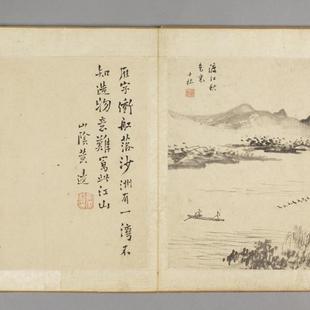 雁字衝船落沙洲有一灣不
知造物意難寫此江山
山陰黃逵
渡江秋
色寒